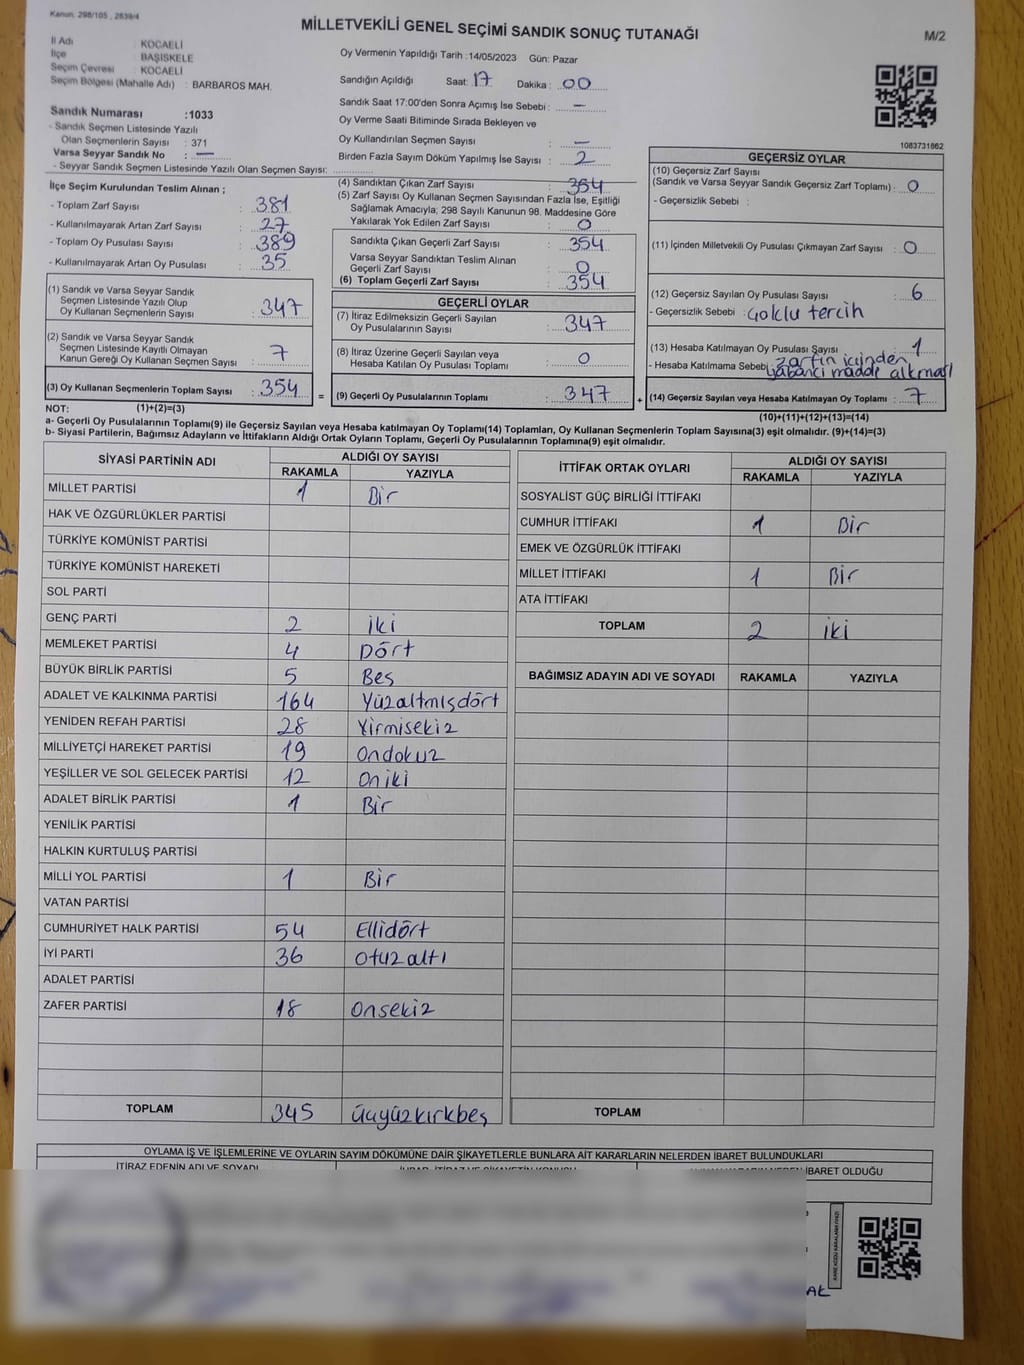 Kanun: 298/105 , 2839/4
MİLLETVEKİLİ GENEL SEÇİMİ SANDIK SONUÇ TUTANAĞI
M/2
İl Adı : KOCAELİ
İlçe : BAŞİSKELE
Seçim Çevresi : KOCAELİ
Seçim Bölgesi (Mahalle Adı) : BARBAROS MAH.
Sandık Numarası :1033
- Sandık Seçmen Listesinde Yazılı
Olan Seçmenlerin Sayısı : 371
Varsa Seyyar Sandık No : —
- Seyyar Sandık Seçmen Listesinde Yazılı Olan Seçmen Sayısı:
Oy Vermenin Yapıldığı Tarih :14/05/2023 Gün: Pazar
Sandığın Açıldığı Saat: 17 Dakika : 00
Sandık Saat 17:00'den Sonra Açımış İse Sebebi : —
Oy Verme Saati Bitiminde Sırada Bekleyen ve
Oy Kullandırılan Seçmen Sayısı : —
Birden Fazla Sayım Döküm Yapılmış İse Sayısı : 2
1083731862
İlçe Seçim Kurulundan Teslim Alınan ;
- Toplam Zarf Sayısı : 381
- Kullanılmayarak Artan Zarf Sayısı : 27
- Toplam Oy Pusulası Sayısı : 389
- Kullanılmayarak Artan Oy Pusulası : 35
(1) Sandık ve Varsa Seyyar Sandık
Seçmen Listesinde Yazılı Olup
Oy Kullanan Seçmenlerin Sayısı : 347
(2) Sandık ve Varsa Seyyar Sandık
Seçmen Listesinde Kayıtlı Olmayan
Kanun Gereği Oy Kullanan Seçmen Sayısı : 7
(3) Oy Kullanan Seçmenlerin Toplam Sayısı : 354
(4) Sandıktan Çıkan Zarf Sayısı : 354
(5) Zarf Sayısı Oy Kullanan Seçmen Sayısından Fazla İse, Eşitliği
Sağlamak Amacıyla; 298 Sayılı Kanunun 98. Maddesine Göre
Yakılarak Yok Edilen Zarf Sayısı : 0
Sandıkta Çıkan Geçerli Zarf Sayısı : 354
Varsa Seyyar Sandıktan Teslim Alınan
Geçerli Zarf Sayısı : 0
(6) Toplam Geçerli Zarf Sayısı : 354
GEÇERLİ OYLAR
(7) İtiraz Edilmeksizin Geçerli Sayılan
Oy Pusulalarının Sayısı : 347
(8) İtiraz Üzerine Geçerli Sayılan veya
Hesaba Katılan Oy Pusulası Toplamı : 0
= (9) Geçerli Oy Pusulalarının Toplamı : 347 +
GEÇERSİZ OYLAR
(10) Geçersiz Zarf Sayısı
(Sandık ve Varsa Seyyar Sandık Geçersiz Zarf Toplamı) : 0
- Geçersizlik Sebebi :
(11) İçinden Milletvekili Oy Pusulası Çıkmayan Zarf Sayısı : 0
(12) Geçersiz Sayılan Oy Pusulası Sayısı : 6
- Geçersizlik Sebebi : Çoklu tercih
(13) Hesaba Katılmayan Oy Pusulası Sayısı : 1
- Hesaba Katılmama Sebebi : zarfın içinden
yabancı madde çıkması
(14) Geçersiz Sayılan veya Hesaba Katılmayan Oy Toplamı : 7
NOT: (1)+(2)=(3)
(10)+(11)+(12)+(13)=(14)
a- Geçerli Oy Pusulalarının Toplamı(9) ile Geçersiz Sayılan veya Hesaba Katılmayan Oy Toplamı(14) Toplamları, Oy Kullanan Seçmenlerin Toplam Sayısına(3) eşit olmalıdır. (9)+(14)=(3)
b- Siyasi Partilerin, Bağımsız Adayların ve İttifakların Aldığı Ortak Oyların Toplamı, Geçerli Oy Pusulalarının Toplamına(9) eşit olmalıdır.
SİYASİ PARTİNİN ADI ALDIĞI OY SAYISI
RAKAMLA YAZIYLA
MİLLET PARTİSİ 1 Bir
HAK VE ÖZGÜRLÜKLER PARTİSİ
TÜRKİYE KOMÜNİST PARTİSİ
TÜRKİYE KOMÜNİST HAREKETİ
SOL PARTİ
GENÇ PARTİ 2 iki
MEMLEKET PARTİSİ 4 Dört
BÜYÜK BİRLİK PARTİSİ 5 Beş
ADALET VE KALKINMA PARTİSİ 164 Yüzaltmışdört
YENİDEN REFAH PARTİSİ 28 Yirmisekiz
MİLLİYETÇİ HAREKET PARTİSİ 19 Ondokuz
YEŞİLLER VE SOL GELECEK PARTİSİ 12 Oniki
ADALET BİRLİK PARTİSİ 1 Bir
YENİLİK PARTİSİ
HALKIN KURTULUŞ PARTİSİ
MİLLİ YOL PARTİSİ 1 Bir
VATAN PARTİSİ
CUMHURİYET HALK PARTİSİ 54 Ellidört
İYİ PARTİ 36 Otuzaltı
ADALET PARTİSİ
ZAFER PARTİSİ 18 Onsekiz
TOPLAM 345 üçyüzkırkbeş
İTTİFAK ORTAK OYLARI ALDIĞI OY SAYISI
RAKAMLA YAZIYLA
SOSYALİST GÜÇ BİRLİĞİ İTTİFAKI
CUMHUR İTTİFAKI 1 Bir
EMEK VE ÖZGÜRLÜK İTTİFAKI
MİLLET İTTİFAKI 1 Bir
ATA İTTİFAKI
TOPLAM 2 iki
BAĞIMSIZ ADAYIN ADI VE SOYADI RAKAMLA YAZIYLA
TOPLAM
OYLAMA İŞ VE İŞLEMLERİNE VE OYLARIN SAYIM DÖKÜMÜNE DAİR ŞİKAYETLERLE BUNLARA AİT KARARLARIN NELERDEN İBARET BULUNDUKLARI
İTİRAZ EDENİN ADI VE SOYADI
İBARET OLDUĞU